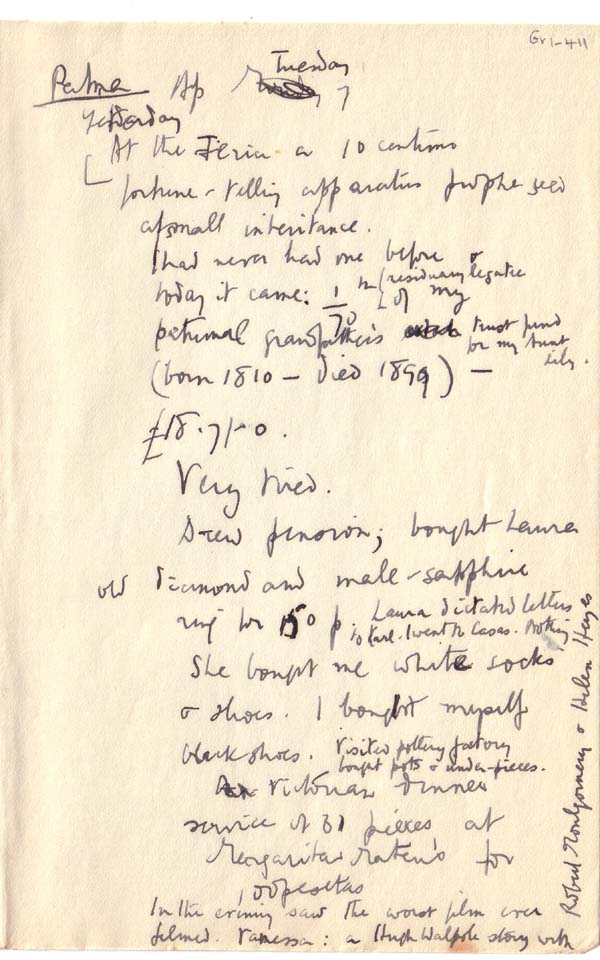 Gr1-411
Palma Ap Tuesday 7
Yesterday
[At the Feria a 10 centimo
fortune-telling apparatus propheseed
a small inheritance.
I had never had one before &
today it came: 1/70 th (residuary legatee
of my
paternal grandfather's trust fund
for my Aunt
Lily.
(born 1810 – died 1899) –
£18.7/-0.
Very tired.
Drew pension; bought Laura
old diamond and male-sapphire
ring for 150 p. Laura dictated letters
to Karl. I went to Casas. Nothing
She bought me white socks
& shoes. I bought myself
black shoes. Visited pottery factory
bought pots & under-pieces.
Victorian dinner
service of 31 pieces at
Margarita Maten's for
100 pesetas
In the evening saw the worst film ever
filmed. Vanessa: a Hugh Walpole story with
Robert Montgomery & Helen Hayes